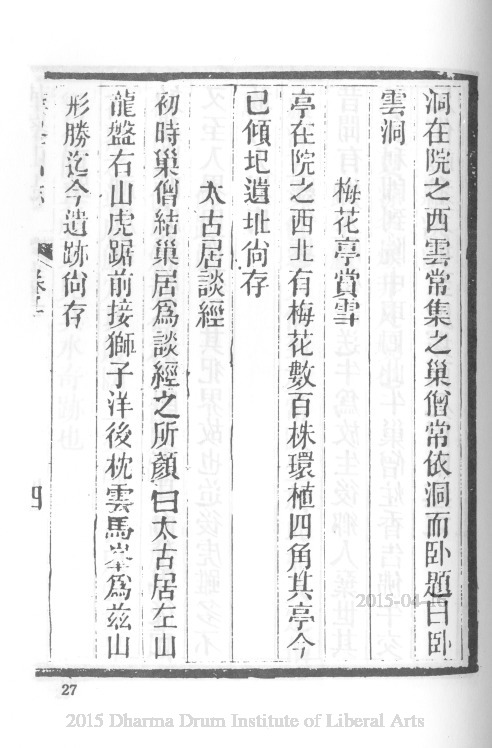 洞在院之西雲常集之巢僧常依洞而卧題曰卧
雲洞
梅花亭賞雪
亭在院之西北有梅花數百株環植四角其亭今
已傾圮遺址尙存
太古居談經
初時巢僧結巢居爲談經之所顏曰太古居左山
龍盤右山虎踞前接獅子洋後枕雲馬峯爲茲山
形勝迄今遺跡尙存
四
27
2015-04-16
2015 Dharma Drum Institute of Liberal Arts